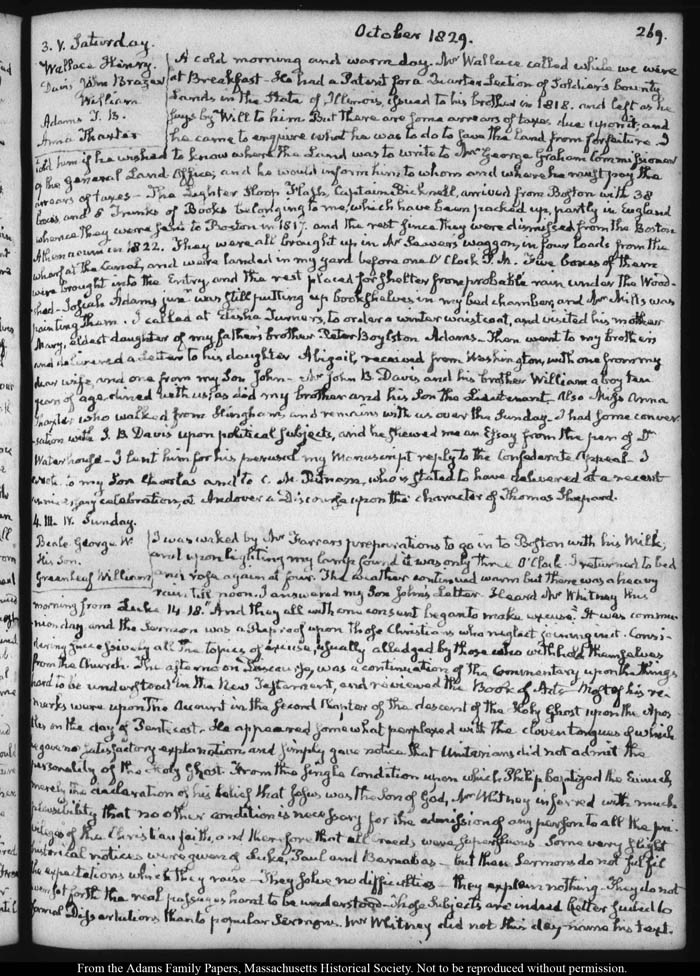 October 1829.
269.
3. V. Saturday.
Wallace Henry.
Davis John Brazer
William
Adams T. B.
Anna Thaxter
A cold morning and warm day. Mr Wallace called while we were
at Breakfast. He had a Patent for a Quarter Section of Soldier's bounty
Lands in the State of Illinois, issued to his brother in 1818. and left as he
says by Will to him. But there are some arrears of taxes due upon it, and
he came to enquire what he was to do to save the land from forfeiture. I
told him if he wished to know where the Land was to write to Mr George Graham Commissioner
of the General Land Office, and he would inform him to whom and where he must pay the
arrears of taxes — The Lighter Sloop Flash, Captain Bicknell, arrived from Boston with 38
boxes and 5 Trunks of Books belonging to me, which have been packed up, partly in England
whence they were sent to Boston in 1817. and the rest since they were dismissed from the Boston
Athenaeum in 1822. They were all brought up in Mr Sawers waggon, in four loads from the
wharf at the Canal, and were landed in my yard before one O'Clock P.M. Five boxes of them
were brought into the Entry, and the rest placed for shelter from probable rain under the Wood-
shed — Josiah Adams junr. was still putting up book shelves in my bed chamber, and Mr Mills was
painting them. I called at Elisha Turner's, to order a winter waistcoat, and visited his mother
Mary, eldest daughter of my father's brother Peter Boylston Adams — Then went to my brothers
and delivered a Letter to his daughter Abigail, received from Washington, with one from my
dear wife, and one from my Son John — Mr John B. Davis and his brother William a boy ten
years of age dined with us, as did my brother and his Son the Lieutenant — Also Miss Anna
Thaxter who walked from Hingham, and remains with us over the Sunday — I had some conver-
sation with J. B. Davis upon political subjects, and he shewed me an Essay from the pen of Dr
Waterhouse — I lent him for his perusal my Manuscript reply to the Confederate Appeal — I
wrote to my Son Charles and to C. M. Putnam, who is stated to have delivered at a recent
anniversary celebration, at Andover a Discourse upon the character of Thomas Shepard.
4. IV. Sunday.
Beale George W.
His Son.
Greenleaf William
I was waked by Mr Farrars preparations to go in to Boston with his Milk;
and upon lighting my lamp found it was only three O'Clock. I returned to bed
and rose again at four. The weather continued warm but there was a heavy
rain till noon. I answered my Son John's Letter. Heard Mr Whitney this
morning from Luke 14. 18. "And they all with one consent began to make excuse." It was commu-
nion day and the Sermon was a Reproof upon those Christians who neglect joining in it. Consi-
dering successively all the topics of excuse, usually alledged by those who withhold themselves
from the Church. The afternoon Discourse, was a continuation of the Commentary upon the things
hard to be understood in the New Testament, and reviewed the Book of Acts. Most of his re-
marks were upon the account in the second Chapter of the descent of the Holy Ghost upon the Apos-
tles on the day of Pentecost. He appeared somewhat perplexed with the cloven tongues of which
he gave no satisfactory explanation and simply gave notice that Unitarians did not admit the
personality of the Holy Ghost. From the single Condition upon which Philip baptized the Eunuch,
merely the declaration of his belief that Jesus was the Son of God, Mr Whitney inferred with much
plausibility that no other condition is necessary for the admission of any person to all the pri-
vileges of the Christian faith, and therefore that all Creeds were superfluous. Some very slight
historical notices were given of Luke, Paul and Barnabas — but these Sermons do not fulfil
the expectations which they raise — They solve no difficulties — they explain nothing — They do not
even set forth the real passages hard to be understood — Those Subjects are indeed better suited to
formal Dissertations than to popular Sermons. Mr Whitney did not this day name his text.
From the Adams Family Papers, Massachusetts Historical Society. Not to be reproduced without permission.